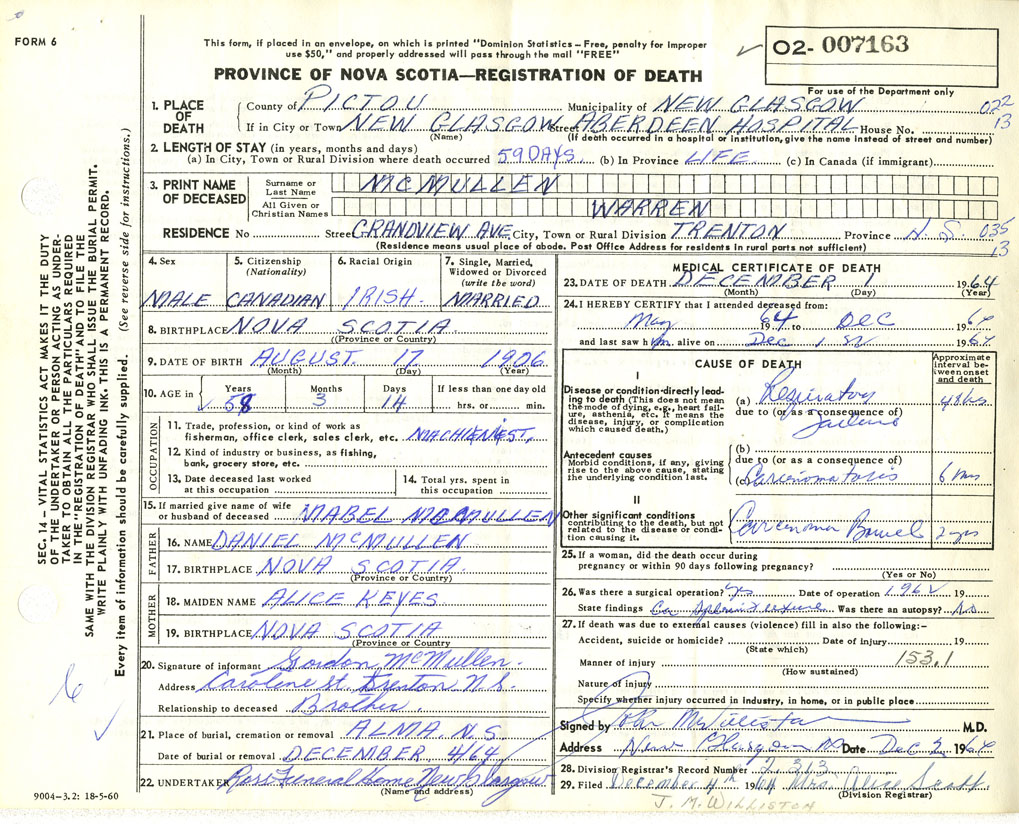 FORM 6
This form, if placed in an envelope, on which is printed "Dominion Statistics – Free, penalty for improper
use $50," and properly addressed will pass through the mail "FREE"
PROVINCE OF NOVA SCOTIA—REGISTRATION OF DEATH
02-007163
For use of the Department only
SEC. 14 – VITAL STATISTICS ACT MAKES IT THE DUTY
OF THE UNDERTAKER OR PERSON ACTING AS UNDER-
TAKER TO OBTAIN ALL THE PARTICULARS REQUIRED
IN THE "REGISTRATION OF DEATH" AND TO FILE THE
SAME WITH THE DIVISION REGISTRAR WHO SHALL ISSUE THE BURIAL PERMIT.
WRITE PLAINLY WITH UNFADING INK. THIS IS A PERMANENT RECORD.
Every item of information should be carefully supplied. (See reverse side for instructions.)
1. PLACE OF DEATH
County of PICTOU Municipality of NEW GLASGOW 022
If in City or Town NEW GLASGOW Street ABERDEEN HOSPITAL House No. 13
(Name) (If death occurred in a hospital or institution, give the name instead of street and number)
2. LENGTH OF STAY (in years, months and days)
(a) In City, Town or Rural Division where death occurred 59 DAYS (b) In Province LIFE (c) In Canada (if immigrant)
3. PRINT NAME OF DECEASED
Surname or Last Name MCMULLEN
All Given or Christian Names WARREN
RESIDENCE No Street GRANDVIEW AVE City, Town or Rural Division TRENTON Province N.S. 035
13
(Residence means usual place of abode. Post Office Address for residents in rural parts not sufficient)
4. Sex MALE
5. Citizenship (Nationality) CANADIAN
6. Racial Origin IRISH.
7. Single, Married, Widowed or Divorced (write the word) MARRIED
8. BIRTHPLACE NOVA SCOTIA
(Province or Country)
9. DATE OF BIRTH AUGUST 17 1906
(Month) (Day) (Year)
10. AGE in Years 58 Months 3 Days 14 If less than one day old hrs. or min.
OCCUPATION
11. Trade, profession, or kind of work as
fisherman, office clerk, sales clerk, etc. MACHIENEST,
12. Kind of industry or business, as fishing,
bank, grocery store, etc.
13. Date deceased last worked
at this occupation
14. Total yrs. spent in
this occupation
15. If married give name of wife
or husband of deceased MABEL MCMULLEN
FATHER
16. NAME DANIEL MCMULLEN
17. BIRTHPLACE NOVA SCOTIA
(Province or Country)
MOTHER
18. MAIDEN NAME ALICE KEYES
19. BIRTHPLACE NOVA SCOTIA
(Province or Country
20. Signature of informant Gordon McMullen.
Address Caroline St. Trenton N.S.
Relationship to deceased Brother.
21. Place of burial, cremation or removal ALMA. N.S.
Date of burial or removal DECEMBER 4/64
22. UNDERTAKER Ross Funeral Home New Glasgow
(Name and address)
9004-3.2: 18-5-60
MEDICAL CERTIFICATE OF DEATH
23. DATE OF DEATH DECEMBER 1 1964
(Month) (Day) (Year)
24. I HEREBY CERTIFY that I attended deceased from:
May 1964 to Dec 1964
and last saw him alive on Dec 1 1964
CAUSE OF DEATH
Approximate interval between onset and death
I
Disease or condition directly lead-
ing to death (This does not mean
the mode of dying, e.g., heart fail-
ure, asthenia, etc. It means the
disease, injury, or complication
which caused death.)
(a) Respiratory 48 hrs
due to (or as a consequence of)
Failure
Antecedent causes
Morbid conditions, if any, giving
rise to the above cause, stating
the underlying condition last.
(b)
due to (or as a consequence of)
(c) Carcinomatosis 6 mos
II
Other significant conditions
contributing to the death, but not
related to the disease or condi-
tion causing it.
Carcinoma Bowel 2 yrs
25. If a woman, did the death occur during
pregnancy or within 90 days following pregnancy?
(Yes or No)
26. Was there a surgical operation? Yes Date of operation 1962 19
State findings Ca Splenic flexure Was there an autopsy? No
27. If death was due to external causes (violence) fill in also the following:–
Accident, suicide or homicide? Date of injury 19
(State which)
Manner of injury 153.1
(How sustained)
Nature of injury
Specify whether injury occurred in industry, in home, or in public place
Signed by John M Williston M.D.
Address New Glasgow NS Date Dec 2 1964
28. Division Registrar's Record Number 2313
29. Filed December 4th 1964 Mrs. Alice Scott
(Division Registrar)
J. M. WILLISTON